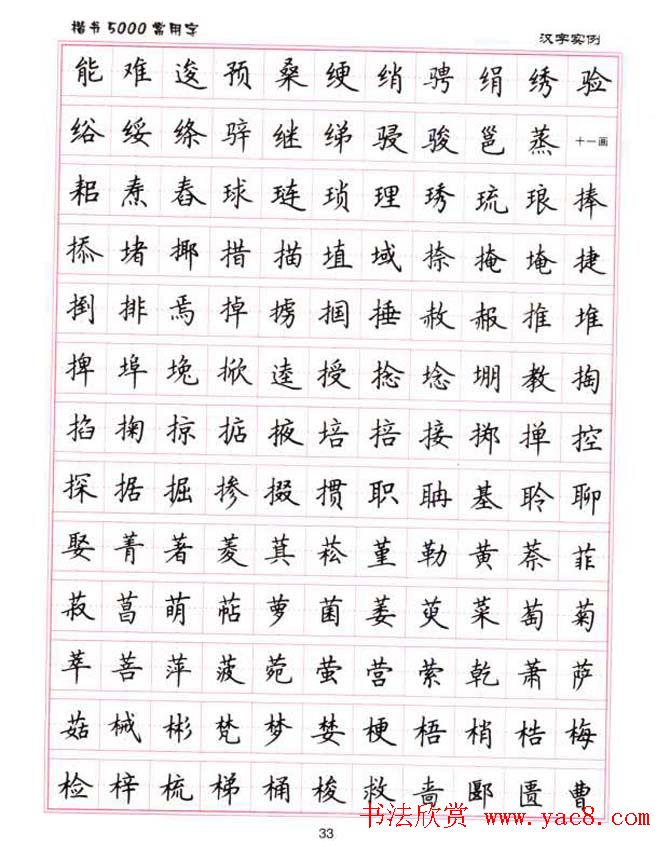 楷书5000常用字 汉字实例
能难逡预桑绠绡骋绢绣验
绤绥绦骍继绨骎骏邕蒸十一画
耜焘舂球琏琐理琇琉琅捧
掭堵揶措描埴域捺掩埯捷
捯排焉掉掳掴捶赦赧推堆
捭埠堍掀逵授捻埝堋教掏
掐掬掠掂掖培掊接掷掸控
探据掘掺掇掼职聃基聆聊
娶菁著菱萁菘堇勒黄萘菲
菽菖萌萜萝菌萎萸菜萄菊
萃菩萍菠菀萤营萦乾萧萨
菇械彬梵梦婪梗梧梢梏梅
检梓梳梯桶梭救啬郾匮曹
33
书法欣赏→www.yac8.com